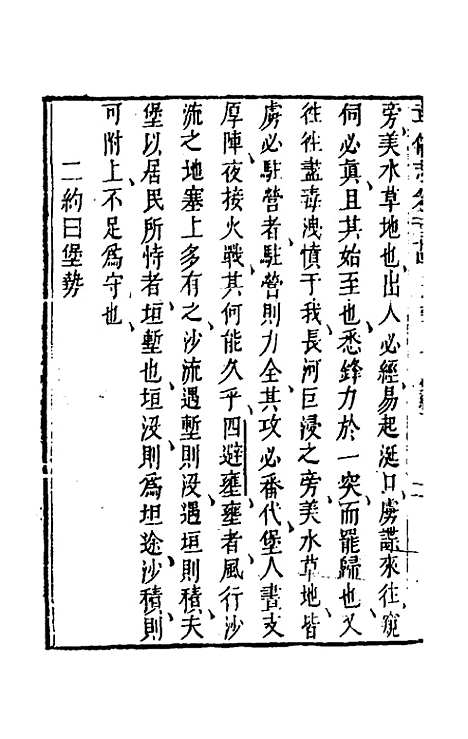 旁美水草地也出人必經易起涎口虜諜來往窺
伺必真且其始至也悉鋒力於一突而罷歸也又
徃徃蓋毒洩憤于我長河巨浸之旁美水草地皆
虜必駐營者駐營則力全其攻必番代堡人晝支
厚陣夜接火戰其何能久乎四避壅壅者風行沙
流之地塞上多有之沙流遇塹則沒遇垣則積夫
堡以居民所恃者垣塹也垣沒則爲坦途沙積則
可附上不足爲守也
二約曰堡勢